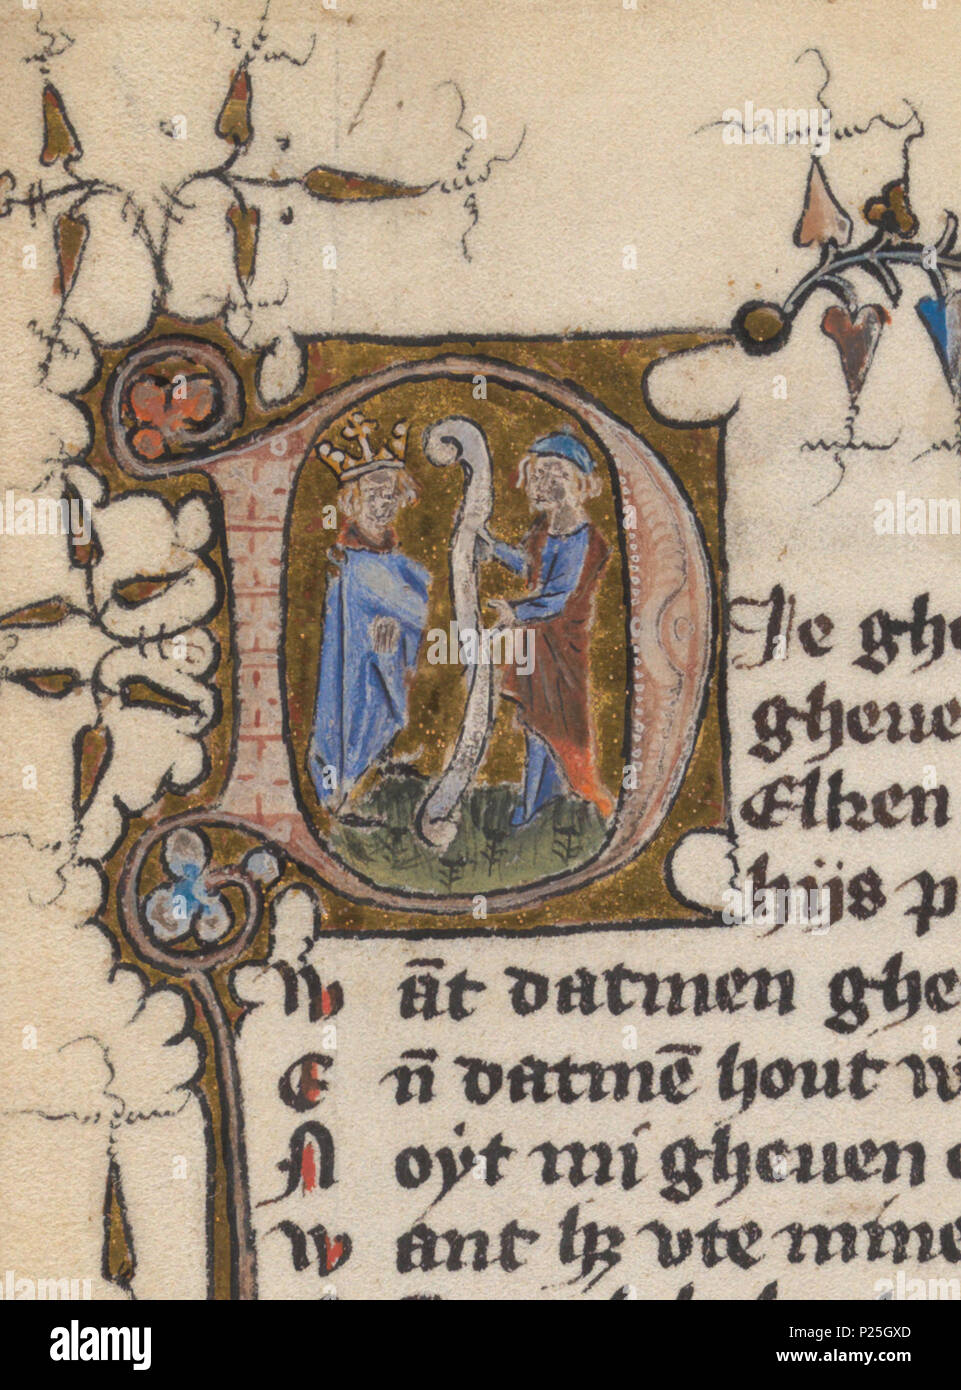 Die ghe
gheue
Elken
hijs p
W āt datmen ghe
E n̄ datmē hout w
N oyt mi gheuen
W ant hꝫ vte mine
alamy
Image ID: P25GXD
www.alamy.com